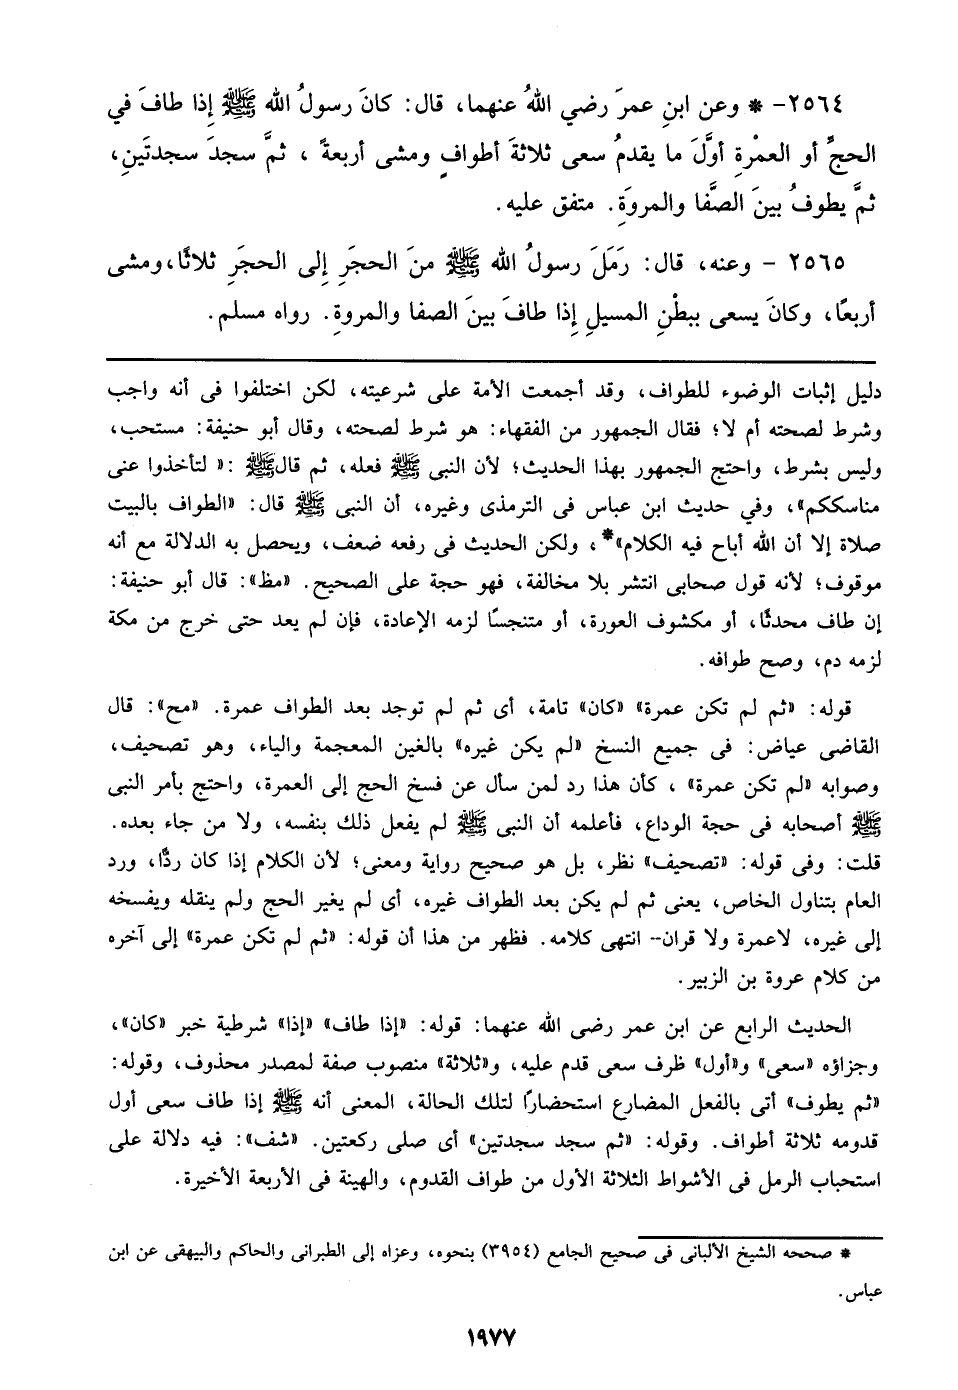 ٢٥٦٤- * وعن ابنِ عمرَ رضي اللهُ عنهما، قال: كانَ رسولُ الله ﷺ إِذا طافَ في
الحجِّ أو العمْرةِ أوَّلَ ما يقدمُ سعى ثلاثةَ أطوافٍ ومشى أربعةً ، ثمَّ سجدَ سجدتَينِ،
ثمَّ يطوفُ بينَ الصَّفا والمروَةِ. متفق عليه.
٢٥٦٥ - وعنه، قال: رَمَلَ رسولُ الله ﷺ منَ الحجَرِ إِلى الحجَرِ ثلاثًا،ومشى
أربعًا، وكانَ يسعى ببطْنِ المسيلِ إِذا طافَ بينَ الصفا والمروةِ. رواه مسلم.
دليل إثبات الوضوء للطواف، وقد أجمعت الأمة على شرعيته، لكن اختلفوا فى أنه واجب
وشرط لصحته أم لا؛ فقال الجمهور من الفقهاء: هو شرط لصحته، وقال أبو حنيفة: مستحب،
وليس بشرط، واحتج الجمهور بهذا الحديث؛ لأن النبى ﷺ فعله، ثم قالﷺ :« لتأخذوا عنى
مناسككم»، وفي حديث ابن عباس فى الترمذى وغيره، أن النبى ﷺ قال: «الطواف بالبيت
صلاة إلا أن الله أباح فيه الكلام»*، ولكن الحديث فى رفعه ضعف، ويحصل به الدلالة مع أنه
موقوف؛ لأنه قول صحابى انتشر بلا مخالفة، فهو حجة على الصحيح. «مظ»: قال أبو حنيفة:
إن طاف محدثًا، أو مكشوف العورة، أو متنجسًا لزمه الإعادة، فإن لم يعد حتى خرج من مكة
لزمه دم، وصح طوافه.
قوله: «ثم لم تكن عمرة» «كان» تامة، أى ثم لم توجد بعد الطواف عمرة. «مح»: قال
القاضى عياض: فى جميع النسخ «لم يكن غيره» بالغين المعجمة والياء، وهو تصحيف،
وصوابه «لم تكن عمرة» ، كأن هذا رد لمن سأل عن فسخ الحج إلى العمرة، واحتج بأمر النبى
ﷺ أصحابه فى حجة الوداع، فأعلمه أن النبى ﷺ لم يفعل ذلك بنفسه، ولا من جاء بعده.
قلت: وفى قوله: «تصحيف» نظر، بل هو صحيح رواية ومعنى؛ لأن الكلام إذا كان ردًّا، ورد
العام بتناول الخاص، يعنى ثم لم يكن بعد الطواف غيره، أى لم يغير الحج ولم ينقله ويفسخه
إلى غيره، لاعمرة ولا قران-- انتهى كلامه. فظهر من هذا أن قوله: «ثم لم تكن عمرة» إلى آخره
من كلام عروة بن الزبير.
الحديث الرابع عن ابن عمر رضى الله عنهما: قوله: «إذا طاف» «إذا» شرطية خبر «كان»،
وجزاؤه «سعى» و«أول» ظرف سعى قدم عليه، و«ثلاثة» منصوب صفة لمصدر محذوف، وقوله:
«ثم يطوف» أتى بالفعل المضارع استحضارًا لتلك الحالة، المعنى أنه ﷺ إذا طاف سعى أول
قدومه ثلاثة أطواف. وقوله: «ثم سجد سجدتين» أى صلى ركعتين. «شف»: فيه دلالة على
استحباب الرمل فى الأشواط الثلاثة الأول من طواف القدوم، والهينة فى الأربعة الأخيرة.
* صححه الشيخ الألبانى فى صحيح الجامع (٣٩٥٤) بنحوه، وعزاه إلى الطبرانى والحاكم والبيهقى عن ابن
عباس.
١٩٧٧